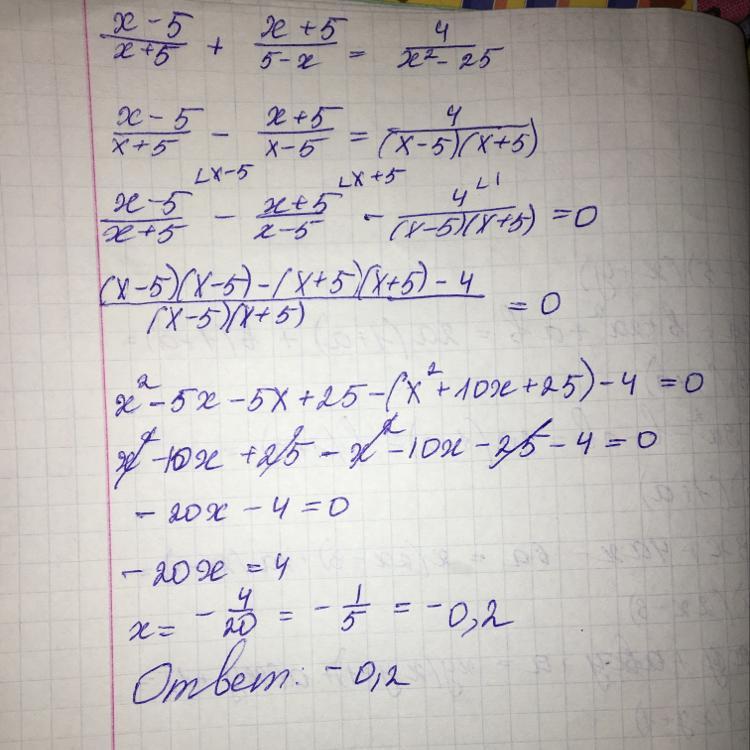 (x-5)/(x+5) + (x+5)/(5-x) = 4/(x²-25)
(x-5)/(x+5) - (x+5)/(x-5) = 4/((x-5)(x+5))
(x-5)/(x+5) ∠x-5 - (x+5)/(x-5) ∠x+5 - 4/((x-5)(x+5)) ∠1 = 0
((x-5)(x-5)-(x+5)(x+5)-4)/((x-5)(x+5)) = 0
x²-5x-5x+25-(x²+10x+25)-4=0
x²-10x+25-x²-10x-25-4=0
-20x-4=0
-20x=4
x= -4/20 = -1/5 = -0,2
Ответ: -0,2